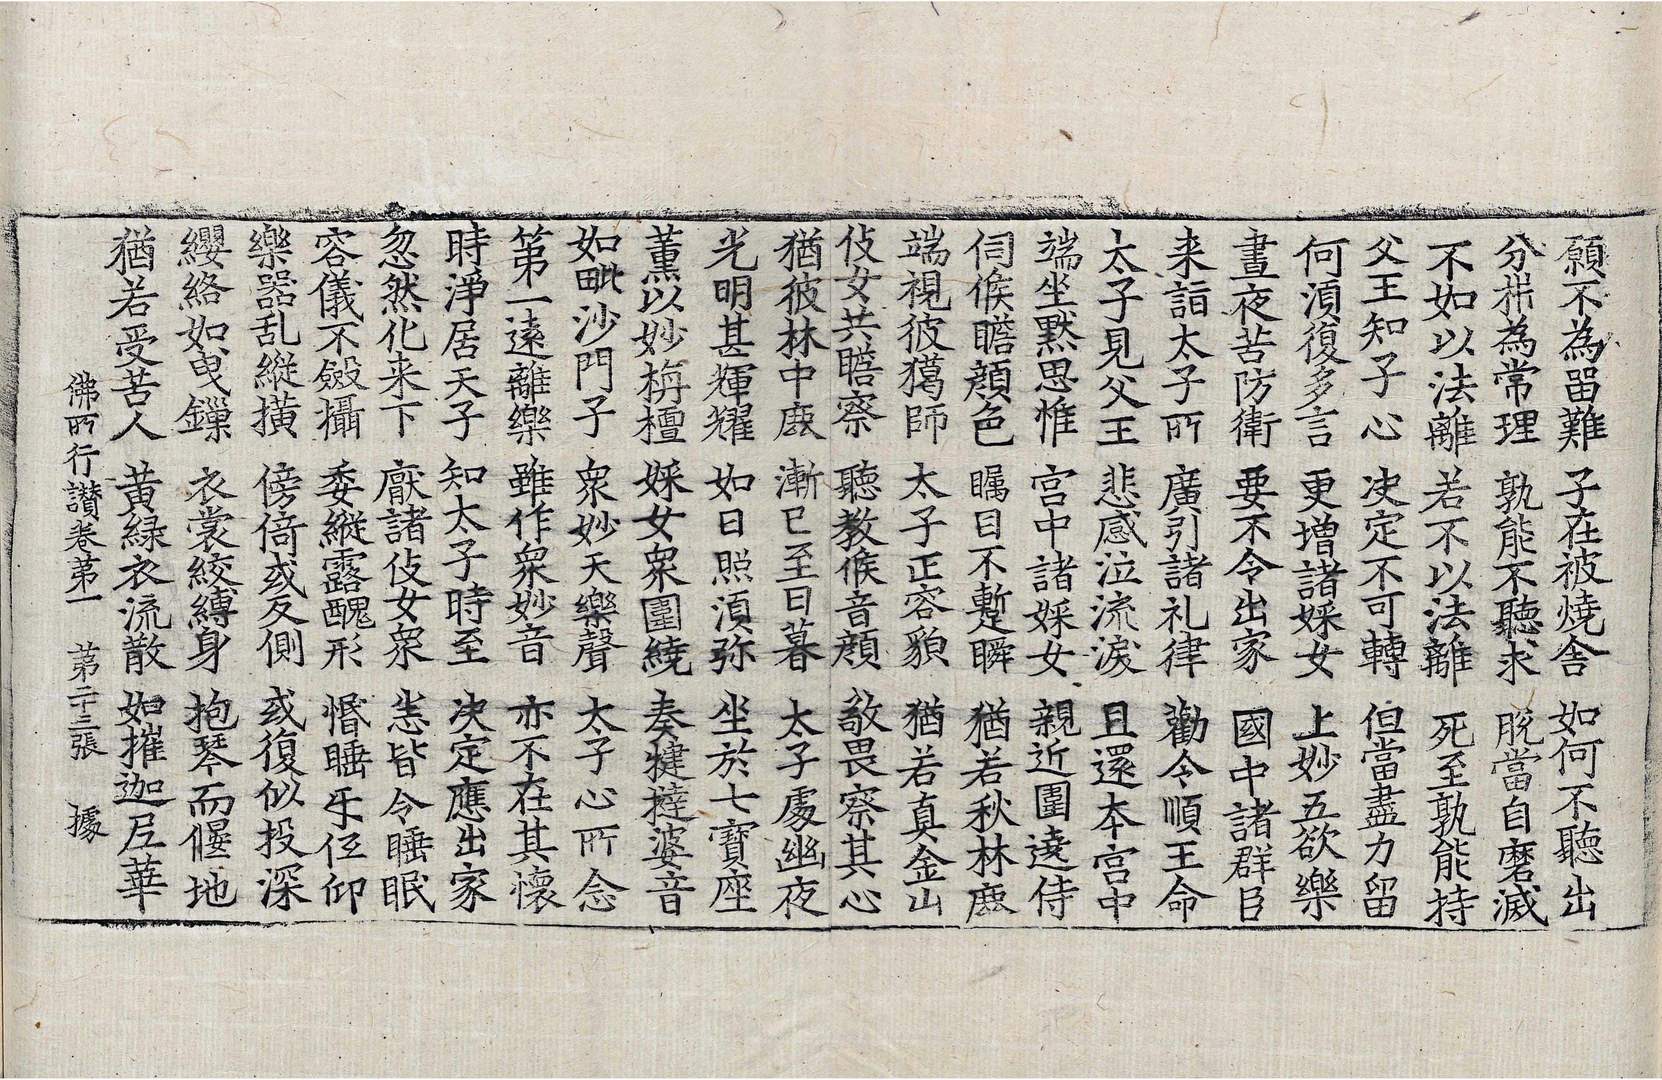 願不為畱難 子在被燒舍 如何不聽出
分析為常理 孰能不聽求 脫當自磨滅
不如以法離 若不以法離 死至孰能持
父王知子心 决定不可轉 但當盡力留
何湏復多言 更增諸婇女 上妙五欲樂
晝夜苦防衛 要不令出家 國中諸群臣
来詣太子所 廣引諸礼律 勸令順王命
太子見父王 悲感泣流淚 且還本宫中
端坐黙思惟 宫中諸婇女 親近圍遶侍
伺候瞻顔色 矚目不暫瞬 猶若秋林鹿
端視彼獦師 太子正容貌 猶若真金山
伎女共瞻察 聽教候音顔 敬畏察其心
猶彼林中鹿 漸已至日暮 太子處幽夜
光明甚輝耀 如日照湏弥 坐於七寶座
薫以妙栴檀 婇女衆圍繞 奏犍撻婆音
如毗沙門子 衆妙天樂聲 太子心所念
第一遠離樂 雖作衆妙音 亦不在其懷
時淨居天子 知太子時至 决定應出家
忽然化来下 厭諸伎女衆 悉皆令睡眠
容儀不斂攝 委縱露醜形 惛睡互伍仰
樂器乱縱撗 傍倚或反側 或復似投深
纓絡如曳鏁 衣裳絞縛身 抱琴而偃地
猶若受苦人 黄緑衣流散 如摧迦尼華
佛所行讃卷苐一 苐二十三張 據